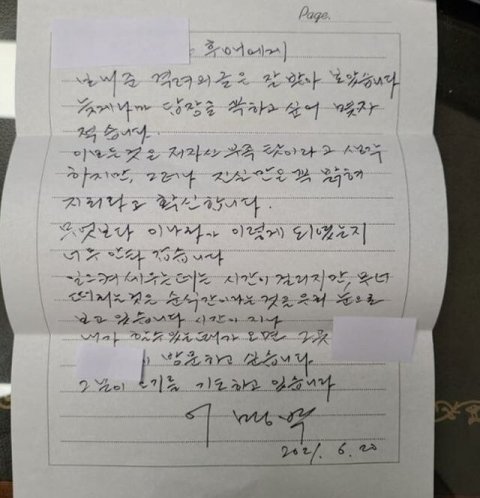 Page.
후배에게
보내준 격려의 글은 잘 받아 보았습니다
늦게나마 답장을 꼭 하고 싶어 몇자
적습니다.
이 모든것은 저 자신 부족 탓이라고 생각
하지만, 그러나 진실만은 꼭 밝혀
지리라고 확신합니다.
무엇보다 이 나라가 이렇게 되었는지
너무 안타깝습니다
일으켜 세우는데는 시간이 걸리지만, 무너
떠지는것은 순식간이라는 것을 우리 눈으로
보고 있습니다 시간이 지나
내가 할수있는때가 오면 그곳
방문하고 싶습니다
그날이 오기를 기도하고 있습니다
이 명 박
2021. 6. 20